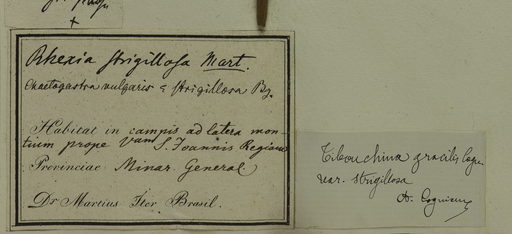 Rhexia strigillosa Mart.
Chaetogastra vulgaris strigillosa
Habitat in campis ad latera mon-
tium prope S. Joannis Regiana
Provinciae Minas General
Dr Martius Iter Brasil.
Tibouchina gracilis Cogn.
var. strigillosa
A. Cogniaux